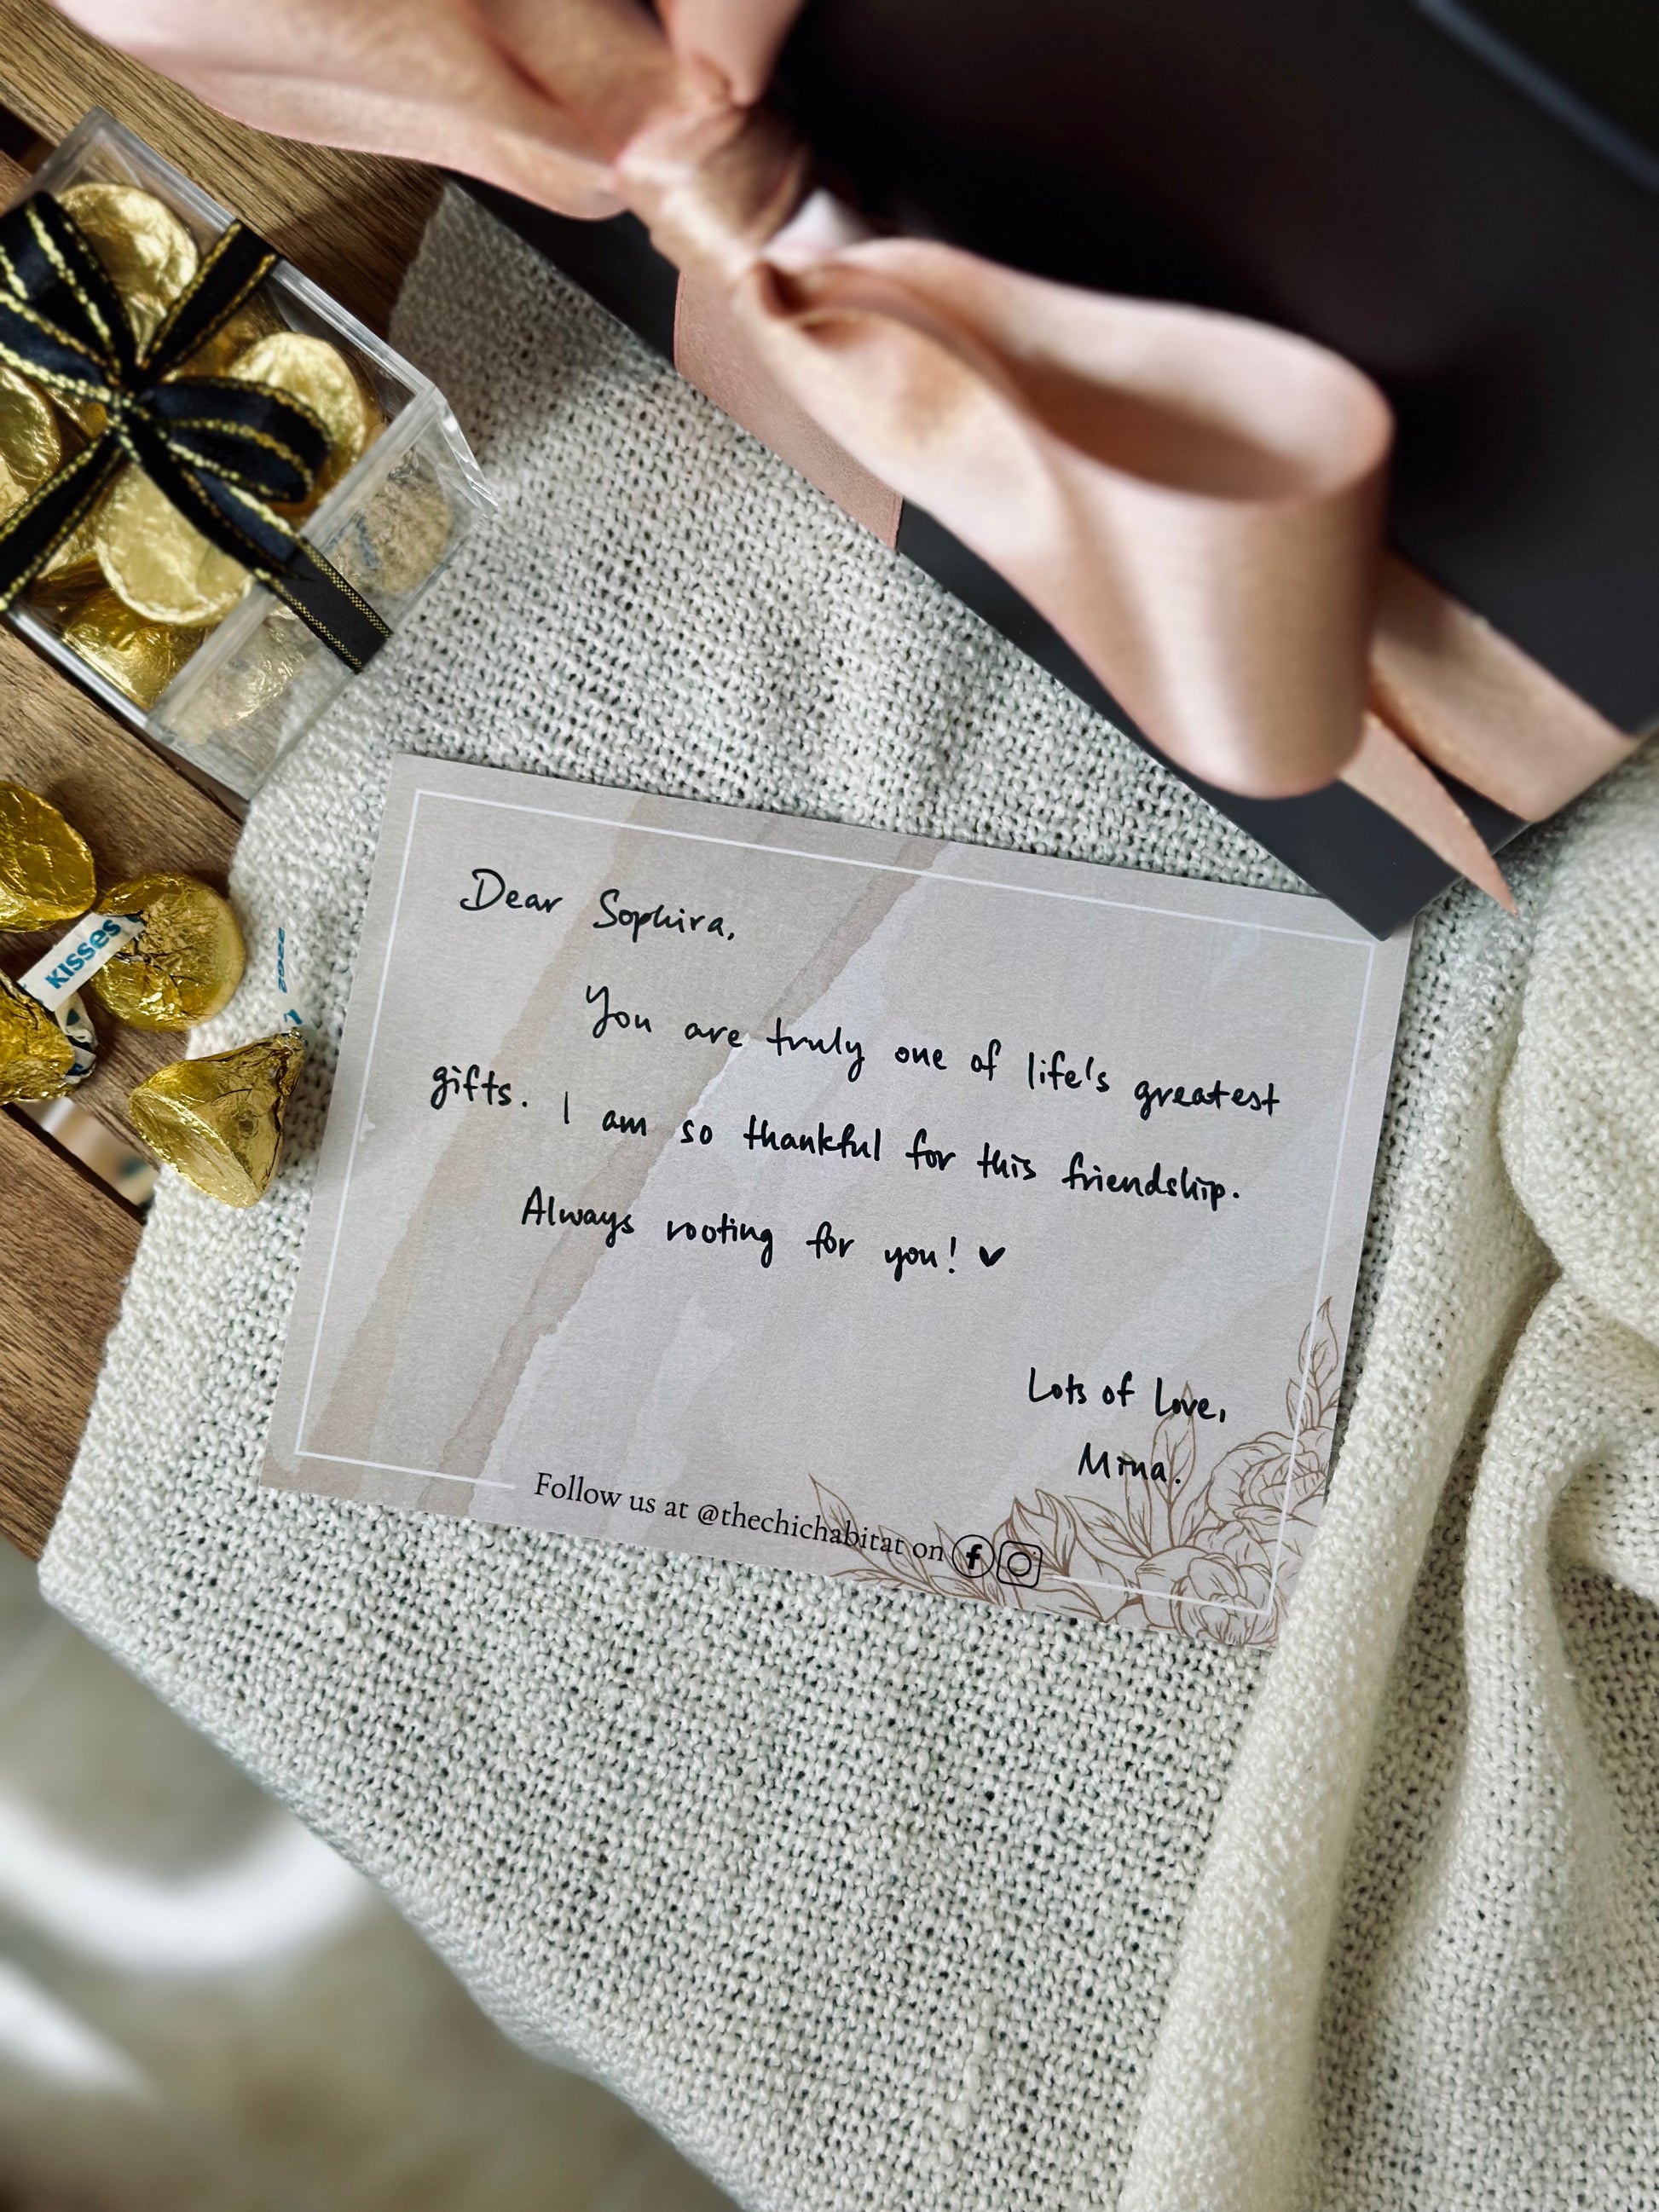 Dear Sophira,
You are truly one of life's greatest
gifts. I am so thankful for this friendship.
Always rooting for you! ♥
Lots of Love,
Mina.
Follow us at @thechichabitat on
KISSES